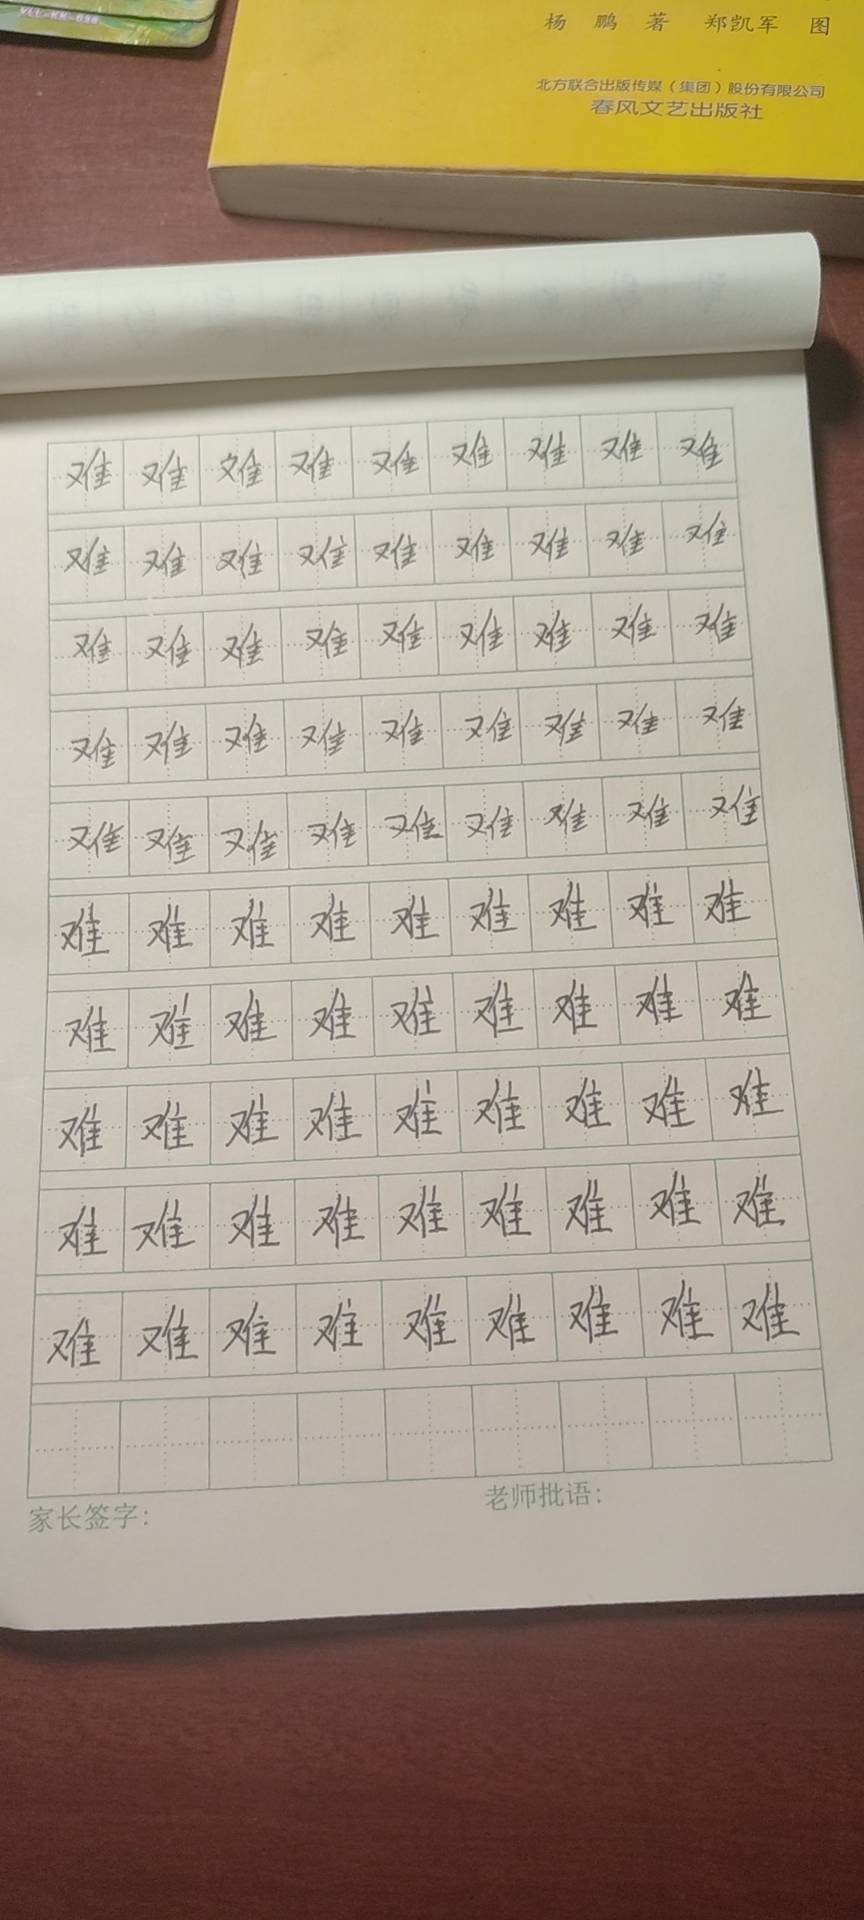 VLT-KK-098
杨 鹏 著 郑凯军 图
北方联合出版传媒（集团）股份有限公司
春风文艺出版社
难难难难难难难难难
难难难难难难难难难
难难难难难难难难难
难难难难难难难难难
难难难难难难难难难
难难难难难难难难难
难难难难难难难难难
难难难难难难难难难
难难难难难难难难难
难难难难难难难难难
家长签字：
老师批语：